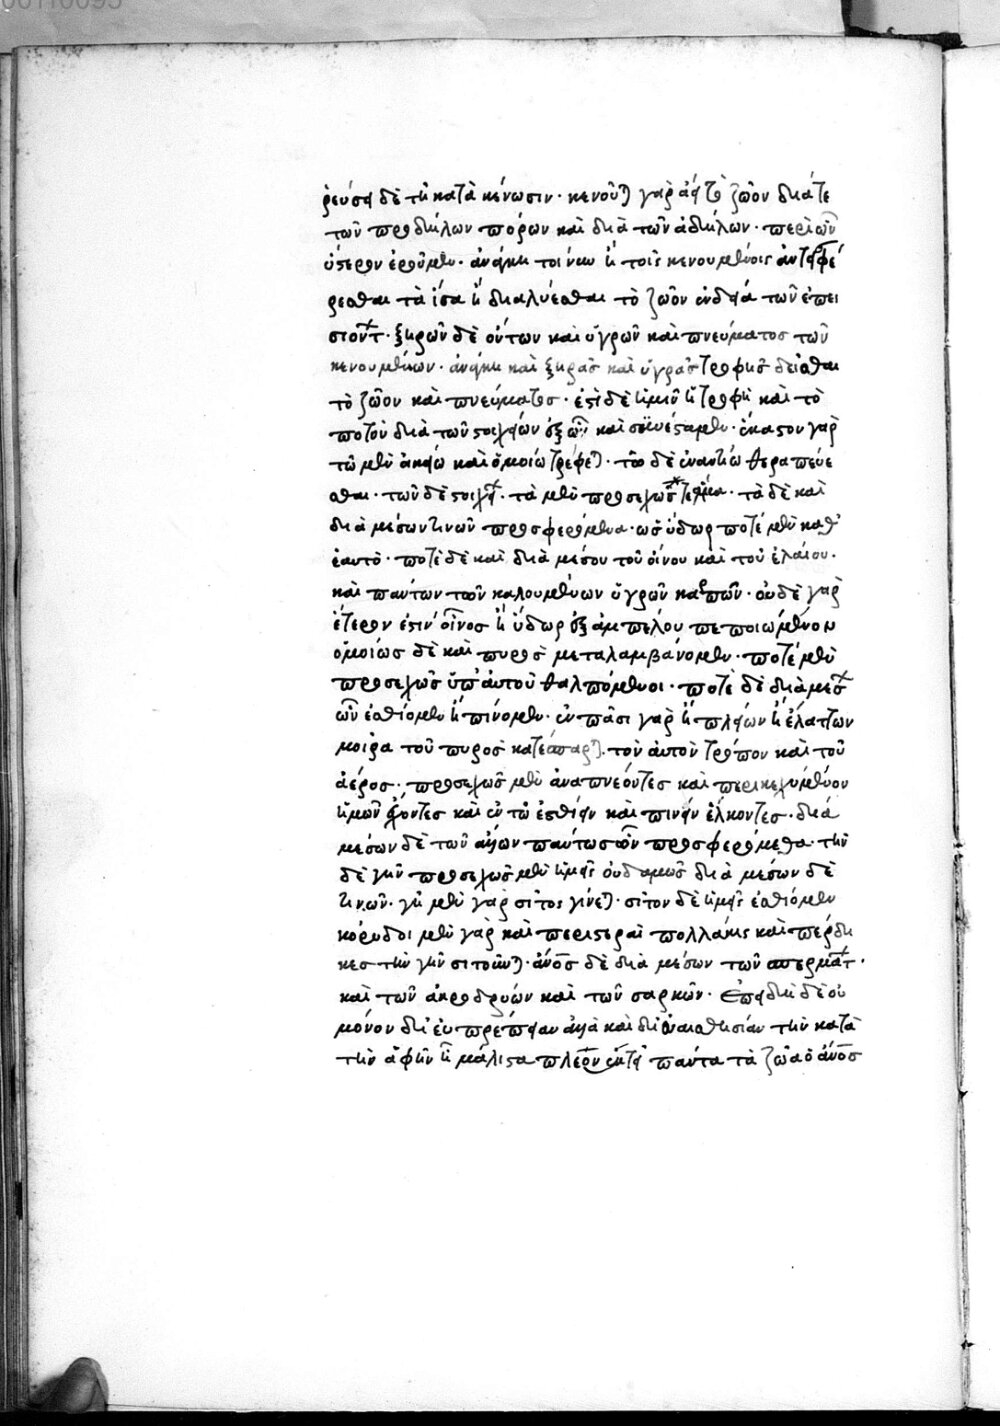 ῥεύσει δὲ τὴν κατὰ κένωσιν· κενοῦται γὰρ ἀεὶ τὸ ζῶον διά τε
τῶν προδήλων πόρων καὶ διὰ τῶν ἀδήλων· περὶ ὧν
ὕστερον ἐροῦμεν· ἀνάγκη τοίνυν ἢ τοῖς κενουμένοις ἀντεισφέ
ρεσθαι τὰ ἴσα ἢ διαλύεσθαι τὸ ζῶον ἐνδείᾳ τῶν ἐπει
σιόντων· ξηρῶν δὲ ὄντων καὶ ὑγρῶν καὶ πνεύματος τῶν
κενουμένων· ἀνάγκη καὶ ξηρᾶς καὶ ὑγρᾶς τροφῆς δεῖσθαι
τὸ ζῶον καὶ πνεύματος· ἐστὶ δὲ ἡμῖν ἡ τροφὴ καὶ τὸ
ποτὸν διὰ τῶν στοιχείων ἐξ ὧν καὶ συνέσταμεν· ἕκαστον γὰρ
τῷ μὲν οἰκείῳ καὶ ὁμοίῳ τρέφεται· τῷ δὲ ἐναντίῳ θεραπεύε
σθαι· τῶν δὲ στοιχείων· τὰ μὲν προσεχῶς · τὰ δὲ καὶ
διὰ μέσων τινῶν προσφερόμενα· ὡς ὕδωρ ποτὲ μὲν καθ'
ἑαυτὸ· ποτὲ δὲ καὶ διὰ μέσου τοῦ οἴνου καὶ τοῦ ἐλαίου·
καὶ πάντων τῶν καλουμένων ὑγρῶν καρπῶν· οὐδὲ γὰρ
ἕτερον ἐστὶν οἶνος ἢ ὕδωρ ἐξ ἀμπέλου πεποιωμένον
ὁμοίως δὲ καὶ πυρὸς μεταλαμβάνομεν· ποτὲ μὲν
προσεχῶς ὑπ' αὐτοῦ θαλπόμενοι· ποτὲ δὲ διὰ μέσων
ὧν ἐσθίομεν ἢ πίνομεν· ἐν πᾶσι γὰρ ἡ πλείων ἢ ἐλάττων
μοῖρα τοῦ πυρὸς κατέσπαρται· τὸν αὐτὸν τρόπον καὶ τοῦ
ἀέρος· προσεχῶς μὲν ἀναπνέοντες καὶ περικεχυμένον
ἡμῶν ἔχοντες καὶ ἐν τῷ ἐσθίειν καὶ πίνειν ἕλκοντες· διὰ
μέσων δὲ τῶν ἄλλων πάντως ὧν προσφερόμεθα· τὴν
δὲ γῆν προσεχῶς μὲν ἡμεῖς οὐδαμῶς διὰ μέσων δὲ
τινῶν· γῆ μὲν γὰρ σῖτος γίνεται· σῖτον δὲ ἡμεῖς ἐσθίομεν
κόρυδοι μὲν γὰρ καὶ περιστεραὶ πολλάκις καὶ πέρδι
κες τὴν γῆν σιτοῦνται· ἄνος δὲ διὰ μέσων τῶν σπερμάτων·
καὶ τῶν ἀκροδρύων καὶ τῶν σαρκῶν· Ἐπειδὴ δὲ οὐ
μόνον δι' εὐπρέπειαν ἀλλὰ καὶ δι' εὐαισθησίαν τὴν κατὰ
τὴν ἁφὴν ᾗ μάλιστα πλεονεκτεῖ πάντα τὰ ζῶα ὁ ἄνος